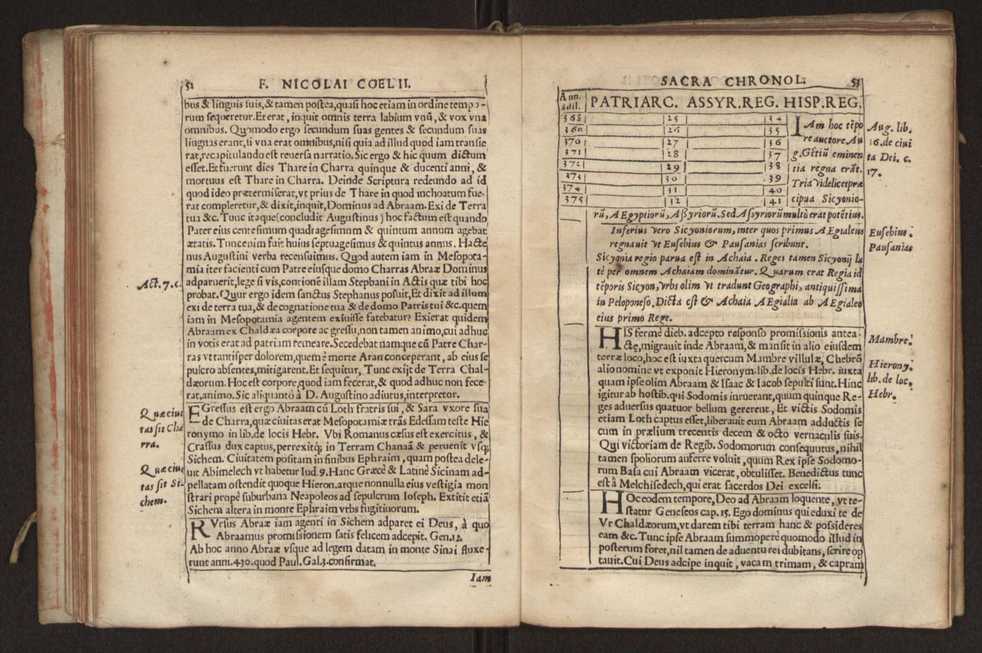 52 F. NICOLAI COELII.
bus & linguis suis, & tamen postea, quasi hoc etiam in ordine tempo-
rum sequeretur. Et erat, inquit omnis terra labium vnũ, & vox vna
omnibus. Quomodo ergo secundum suas gentes & secundum suas
linguas erant, si vna erat omnibus, nisi quia ad illud quod iam transie
rat, recapitulando est reuersa narratio. Sic ergo & hic quum dictum
esset. Et fuerunt dies Thare in Charra quinque & ducenti anni, &
mortuus est Thare in Charra. Deinde Scriptura redeundo ad id
quod ideo prætermiserat, vt prius de Thare in quod inchoatum fue-
rat compleretur, & dixit, inquit, Dominus ad Abraam. Exi de Terra
tua &c. Tunc itaque (concludit Augustinus) hoc factum est quando
Pater eius centesimum quadragesimum & quintum annum agebat
ætatis. Tunc enim fuit huius septuagesimus & quintus annus. Hacte
nus Augustini verba recensuimus. Quod autem iam in Mesopota-
mia iter facienti cum Patre eiusque domo Charras Abraæ Dominus
adparuerit, lege si vis, contione illam Stephani in Actis quæ tibi hoc
probat. Quur ergo idem sanctus Stephanus posuit, Et dixit ad illum
exi de terra tua, & de cognatione tua & de domo Patris tui &c. quem
iam in Mesopotamia agentem exiuisse fatebatur? Exierat quidem
Abraam ex Chaldæa corpore ac gressu, non tamen animo, cui adhuc
in votis erat ad patriam remeare. Secedebat namque cũ Patre Char-
ras vt tantisper dolorem, quem è morte Aran conceperant, ab eius se
pulcro absentes, mitigarent. Et sequitur, Tunc exijt de Terra Chal-
dæorum. Hoc est corpore, quod iam fecerat, & quod adhuc non fece-
rat, animo. Sic aliquantò à D. Augustino adiutus, interpretor.
Act. 7. c.
EGressus est ergo Abraam cũ Loth fratris sui, & Sara vxore sua
de Charra, quæ ciuitas erat Mesopotamiæ trãs Edessam teste Hie
ronymo in lib. de locis Hebr. Vbi Romanus cæsus est exercitus, &
Crassus dux captus, perrexitq; in Terram Chanaã & peruenit vsq;
Sichem. Ciuitatem positam in finibus Ephraim, quam postea dele-
uit Abimelech vt habetur Iud. 9. Hanc Græcè & Latinè Sicimam ad-
pellatam ostendit quoque Hieron. atque nonnulla eius vestigia mon
strari propè suburbana Neapoleos ad sepulcrum Ioseph. Extitit etiã
Sichem altera in monte Ephraim vrbs fugitiuorum.
Quæ ciui
tas sit Cha
rra.
Quæ ciui
tas sit Si-
chem.
RVrsus Abraæ iam agenti in Sichem adparet ei Deus, à quo
Abraamus promissionem satis felicem adcepit. Gen. 12.
Ab hoc anno Abraæ vsque ad legem datam in monte Sinai fluxe-
runt anni. 430. quod Paul. Gal. 3. confirmat.
Iam
SACRA CHRONOL. 53
Ann. dil. PATRIARC. ASSYR. REG. HISP. REG.
368 25 34
369 26 35
370 27 36
371 28 37
372 29 38
373 30 39
374 31 40
375 32 41
IAm hoc tẽpo
re auctore Au
g. Gẽtiũ eminen
tia regna erãt.
Tria videlicet præ
cipua Sicyonio-
rũ, AEgyptiorũ, Assyriorũ. Sed Assyriorũ multò erat potẽtius.
Inferius vero Sicyoniorum, inter quos primus AEgialeus
regnauit vt Eusebius & Pausanias scribunt.
Sicyonia regio parua est in Achaia. Reges tamen Sicyonij la
tè per omnem Achaiam dominãtur. Quarum erat Regia id
tẽporis Sicyon, vrbs olim vt tradunt Geographi, antiquissima
in Peloponeso. Dicta est & Achaia AEgialia ab AEgialeo
eius primo Rege.
Aug. lib.
16. de ciui
ta Dei. c.
17.
Eusebius.
Pausanias
HIS fermè dieb. adcepto responso promissionis anteа-
ctę, migrauit inde Abraam, & mansit in alio eiusdem
terræ loco, hoc est iuxta quercum Mambre villulæ, Chebrõ
alio nomine vt exponit Hieronym. lib. de locis Hebr. iuxta
quam ipse olim Abraam & Isaac & Iacob sepulti sunt. Hinc
igitur ab hostib. qui Sodomis inruerant, quum quinque Re-
ges aduersus quatuor bellum gererent, Et victis Sodomis
etiam Loth captus esset, liberauit eum Abraam adductis se
cum in prælium trecentis decem & octo vernaculis suis.
Qui victoriam de Regib. Sodomorum consequutus, nihil
tamen spoliorum auferre voluit, quum Rex ipse Sodomo-
rum Basa cui Abraam vicerat, obtulisset. Benedictus tunc
est à Melchisedech, qui erat sacerdos Dei excelsi.
Mambre.
Hierony.
lib. de loc.
Hebr.
HOc eodem tempore, Deo ad Abraam loquente, vt te-
statur Geneseos cap. 15. Ego dominus qui eduxi te de
Vr Chaldæorum, vt darem tibi terram hanc & possideres
eam &c. Tunc ipse Abraam summoperè quomodo illud in
posterum foret, nil tamen de aduentu rei dubitans, scire op
tauit. Cui Deus adcipe inquit, vacam trimam, & capram